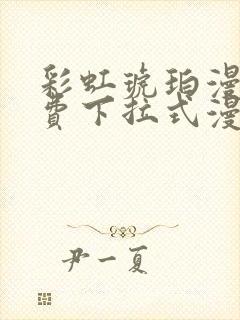 彩虹琥珀漫
費下拉式漫
尹一夏